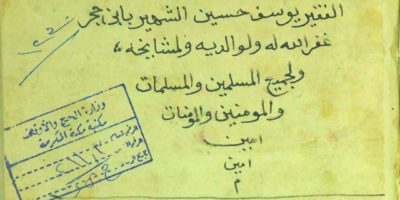 الفقير يوسف حسين الشهير بابي حجر
غفر الله له ولوالديه ولمشايخه
ولجميع المسلمين والمسلمات
والمومنين والمؤمنات
امين
امين
م
وزارة الحج والأوقاف
مكتبة مكة المكرمة